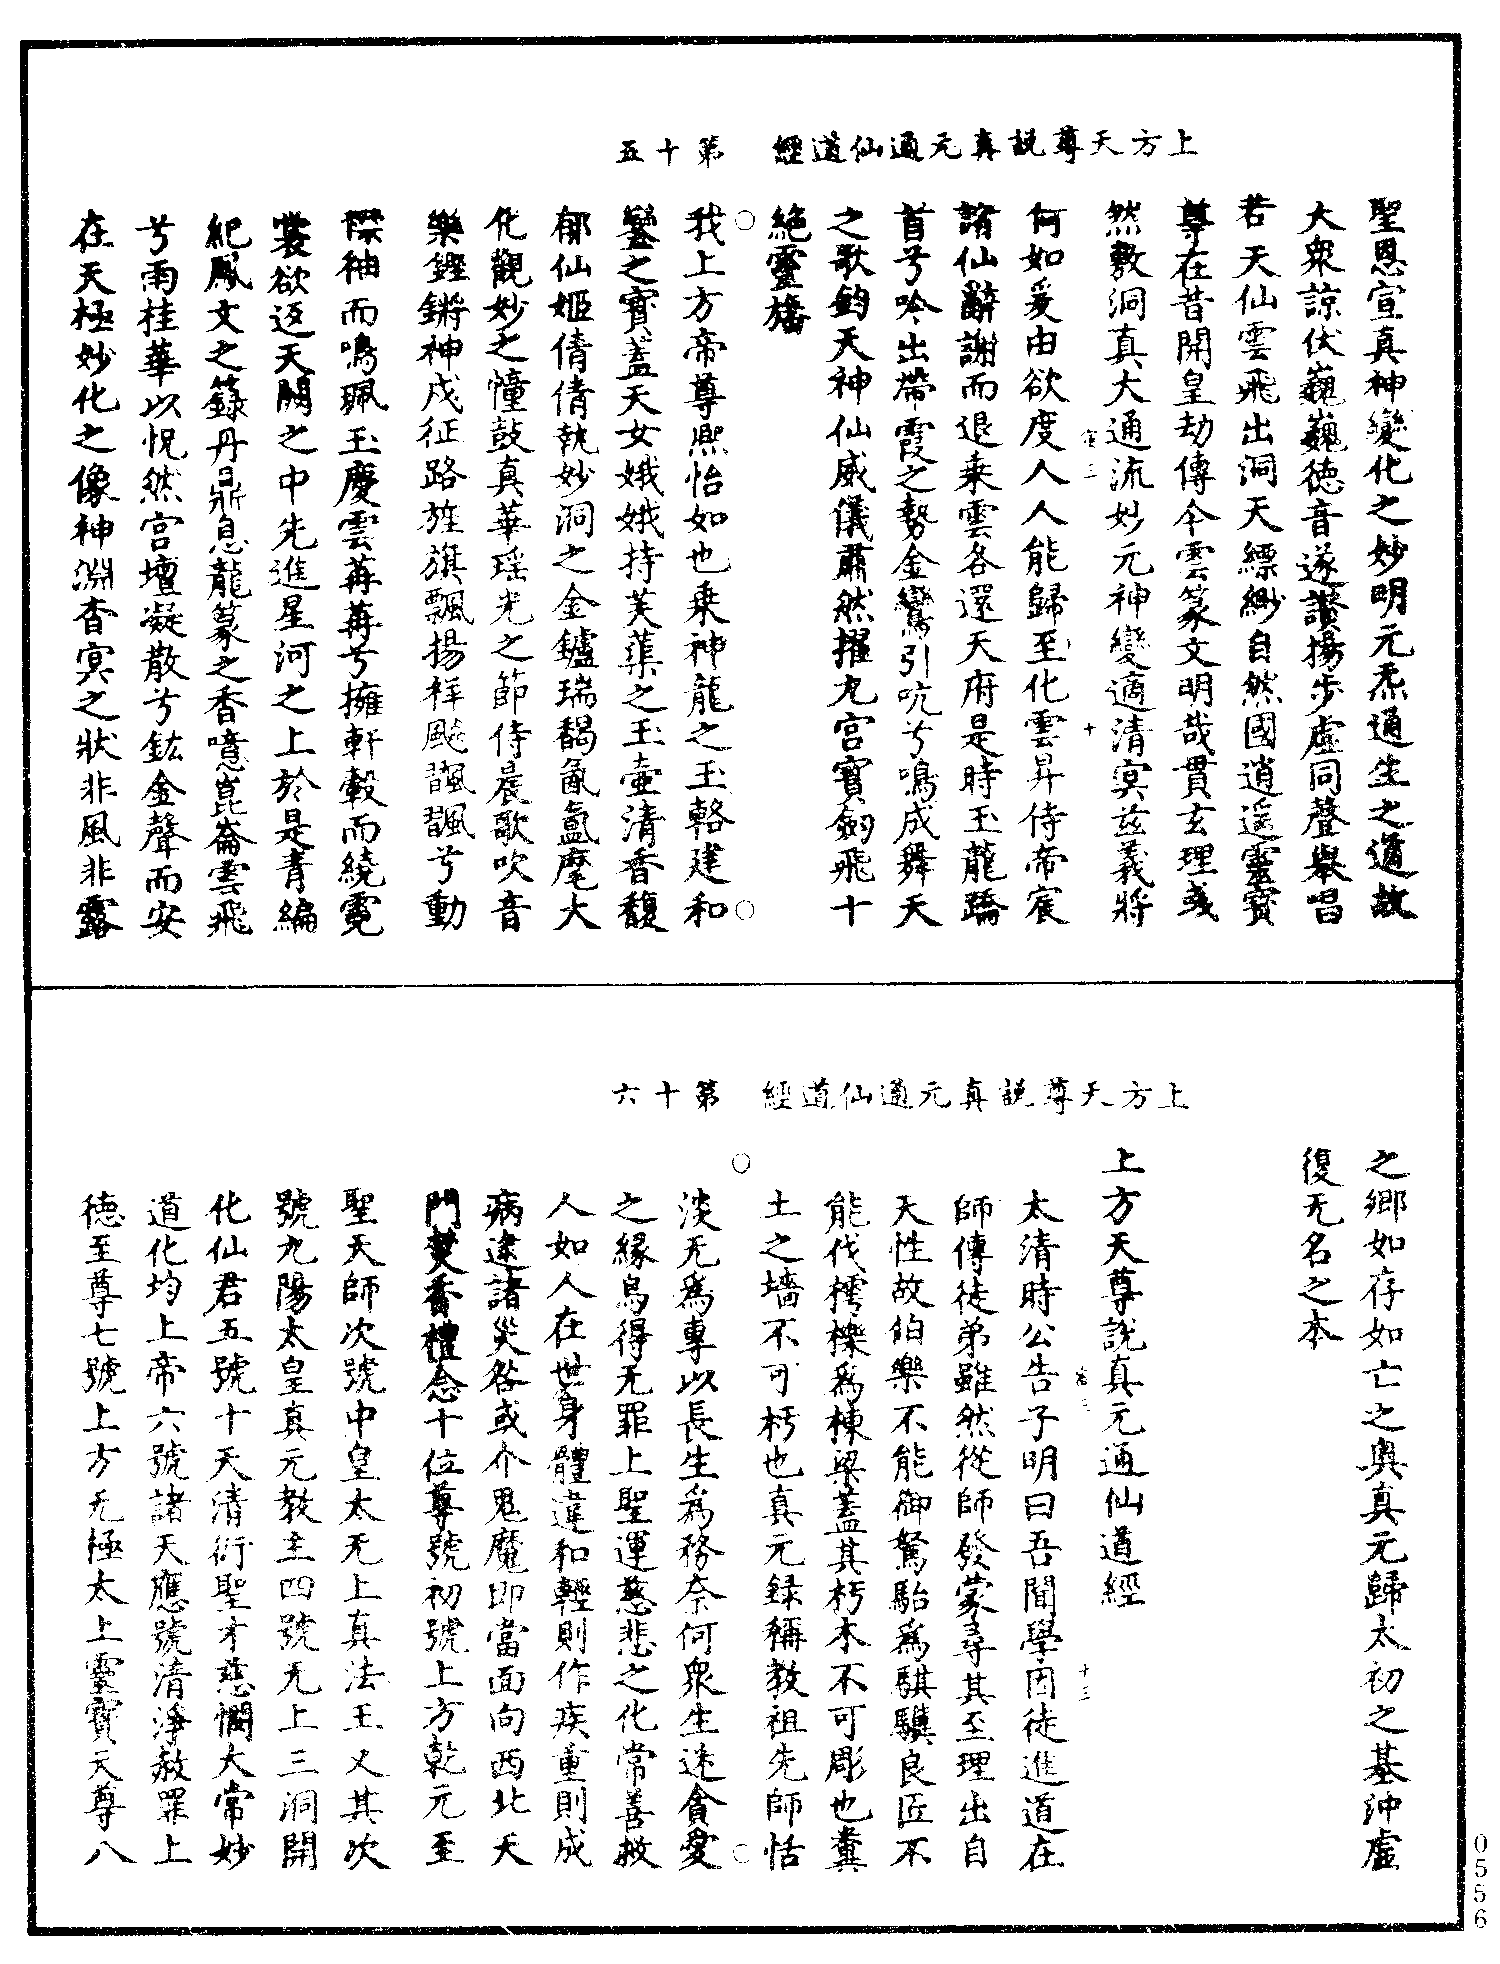 上方天尊說真元通仙道經　第十五
聖恩宣真神變化之妙明元炁通生之道故
大衆諒伏巍巍德音遂讚揚步虛同聲舉唱
若天仙雲飛出洞天縹緲自然國逍遥靈寶
尊在昔開皇劫傳今雲篆文明哉貫玄理彧
然敷洞真大通流妙元神變適清㝠兹義將
何如爰由欲度人人能歸至化雲昇侍帝宸
諸仙辭謝而退乘雲各還天府是時玉龍蹻
首兮吟出帶霞之勢金鸞引吭兮鳴成舞天
之歌鈞天神仙威儀肅然擢九宮寶劒飛十
絕靈旛
我上方帝尊熙怡如也乘神龍之玉輅建和
鑾之寶蓋天女娥娥持芙蕖之玉壷清香馥
郁仙姬倩倩執妙洞之金鑪瑞馤氤氳麾大
化觀妙之幢鼓真華瑶光之節侍晨歌吹音
樂鏗鏘神戍征路旌旗飄揚祥飈颻颻兮動
襟袖而鳴珮玉慶雲苒苒兮擁軒轂而繞霓
裳欲返天關之中先進星河之上於是青編
紀鳳文之籙丹鼎息龍篆之香噫崑崙雲飛
兮雨桂華以怳然宮壇凝散兮鈜金聲而安
在天極妙化之像神淵杳㝠之狀非風非露
上方天尊說真元通仙道經　第十六
之鄉如存如亡之奥真元歸太初之基沖虛
復无名之本
上方天尊說真元通仙道經
太清時公告子明曰吾聞學因徒進道在
師傳徒弟雖然從師發蒙尋其至理出自
天性故伯樂不能御駑駘爲騏驥良匠不
能伐樗櫟爲棟梁蓋其朽木不可彫也糞
土之墻不可杇也真元録稱教祖先師恬
淡无爲專以長生爲務奈何衆生迷貪愛
之緣烏得无罪上聖運慈悲之化常善救
人如人在世身體違和輕則作疾重則成
病逮諸災咎或介鬼魔即當面向西北天
門焚香禮念十位尊號初號上方乾元至
聖天師次號中皇太无上真法王又其次
號九陽太皇真元教主四號无上三洞開
化仙君五號十天清衍聖才慈憫大常妙
道化均上帝六號諸天應號清淨赦罪上
德至尊七號上方无極太上靈寶天尊八
0556